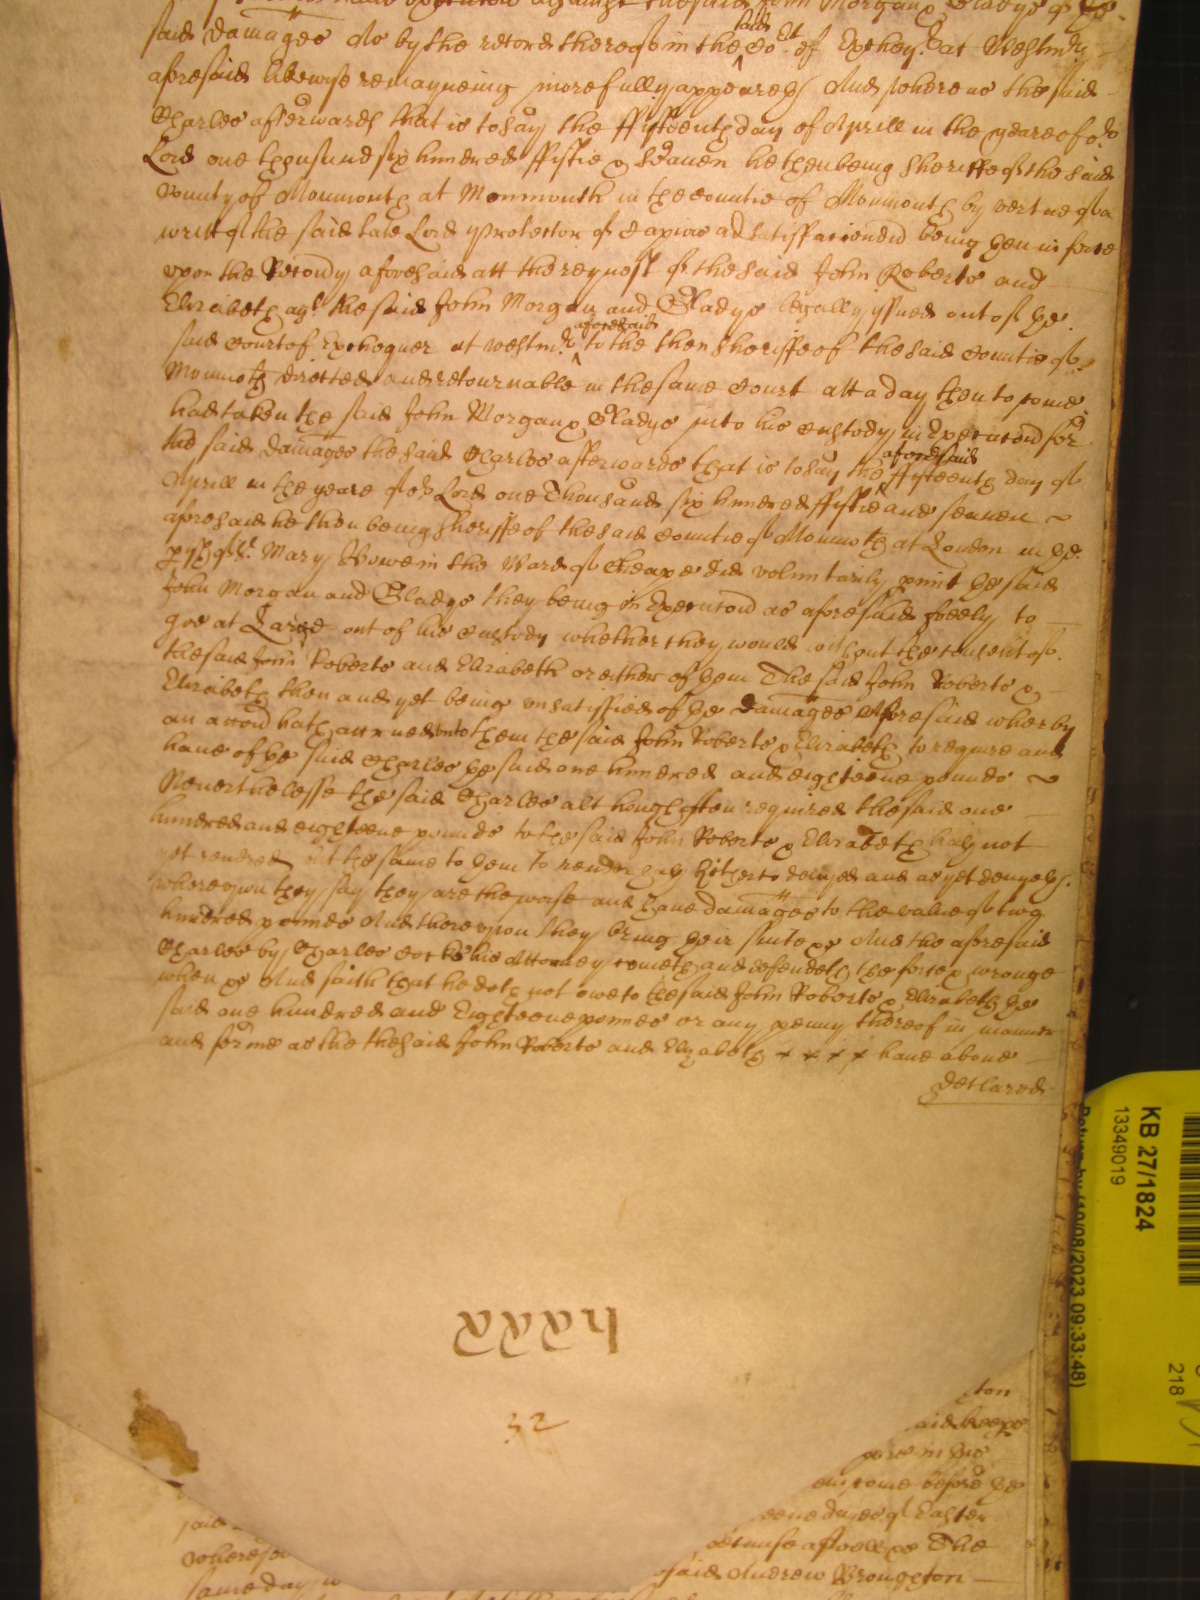 said damages As by the record thereof in the said Co:rt of Excheq:r at Westm:r
aforesaid likewyse remayneing more fully appeareth And whereas the said
Charles afterwards that is to say the ffyfteenth day of Aprill in the yeare of o:r
Lord one thousand six hundred ffiftie & seaven he then being Sheriffe of the said
County of Monmouth at Monmouth in the Countie of Monmouth by vertue of a
writt of the said late Lord Protector of Capias ad satisfaciendu being then in force
upon the Record aforesaid att the request of the said John Roberts and
Elizabeth ag:t the said John Morgan and Gladys legally yssued out of the
said Court of Exchequer at Westm:r aforesaid to the then Sheriffe of the said Countie of
Monmoth directed and retournable in the same Court att a day then to come
had taken the said John Morgan & Gladys into his Custody in Execucon for
the said damages the said Charles afterwards that is to say the aforesaid ffyfteenth day of
Aprill in the yeare of o:r Lord one Thousand six hundred ffyftie and seaven
aforesaid he then being Sheriffe of the said Countie of Monmoth at London in the
pysh of S:t Mary Bowe in the Ward of Cheape did voluntarily pmit the said
John Morgan and Gladys they being in Execucon as aforesaid freely to
goe at Large out of his Custody whether they would without the consent of
the said John Roberts and Elizabeth or either of them The said John Roberts &
Elizabeth then and yet being unsatisfied of the damages aforesaid wherby
an accon hath accrued unto them the said John Roberts & Elizabeth to require and
have of the said Charles the said one hundred and eighteene pounds
Neverthelesse the said Charles although often required the said one
hundred and eighteene pounds to the said John Roberts & Elizabeth hath not
yet rendred but the same to them to render hath hitherto denyed and as yet denyeth
whereupon they say they are the worse and have damages to the value of two
hundred pounds And thereupon they bring their suite &c And the aforesaid
Charles by Charles his Attorney cometh and defendeth the force & wronge
when &c And saith that he doth not owe to the said John Roberts & Elizabeth the
said one hundred and Eighteene pounds or any penny thereof in manner
and forme as the the said John Roberts and Elizabeth have above
declared
32
KB 27/1824
13349019
Return by (10/08/2023 09:33:48)
218
ton
said keepe
in his
come before the
dayes of Easter
The
said
wherefo
said Andrew Broughton
same day